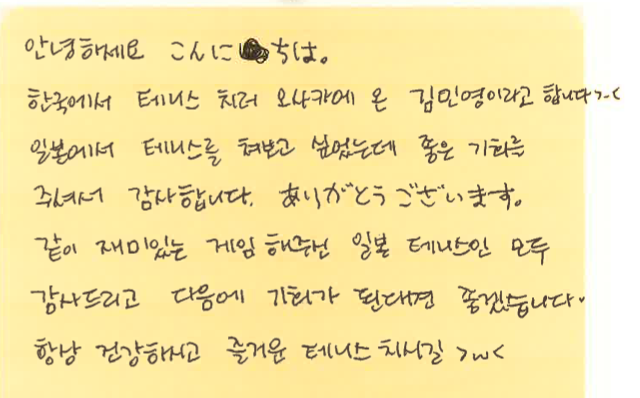 안녕하세요 こんにちは。
한국에서 테니스 치러 오사카에 온 김민영이라고 합니다>.<
일본에서 테니스를 쳐보고 싶었는데 좋은 기회를
주셔서 감사합니다. ありがとうございます。
같이 재미있는 게임 해주신 일본 테니스인 모두
감사드리고 다음에 기회가 된다면 좋겠습니다.
항상 건강하시고 즐거운 테니스 치시길 >w<